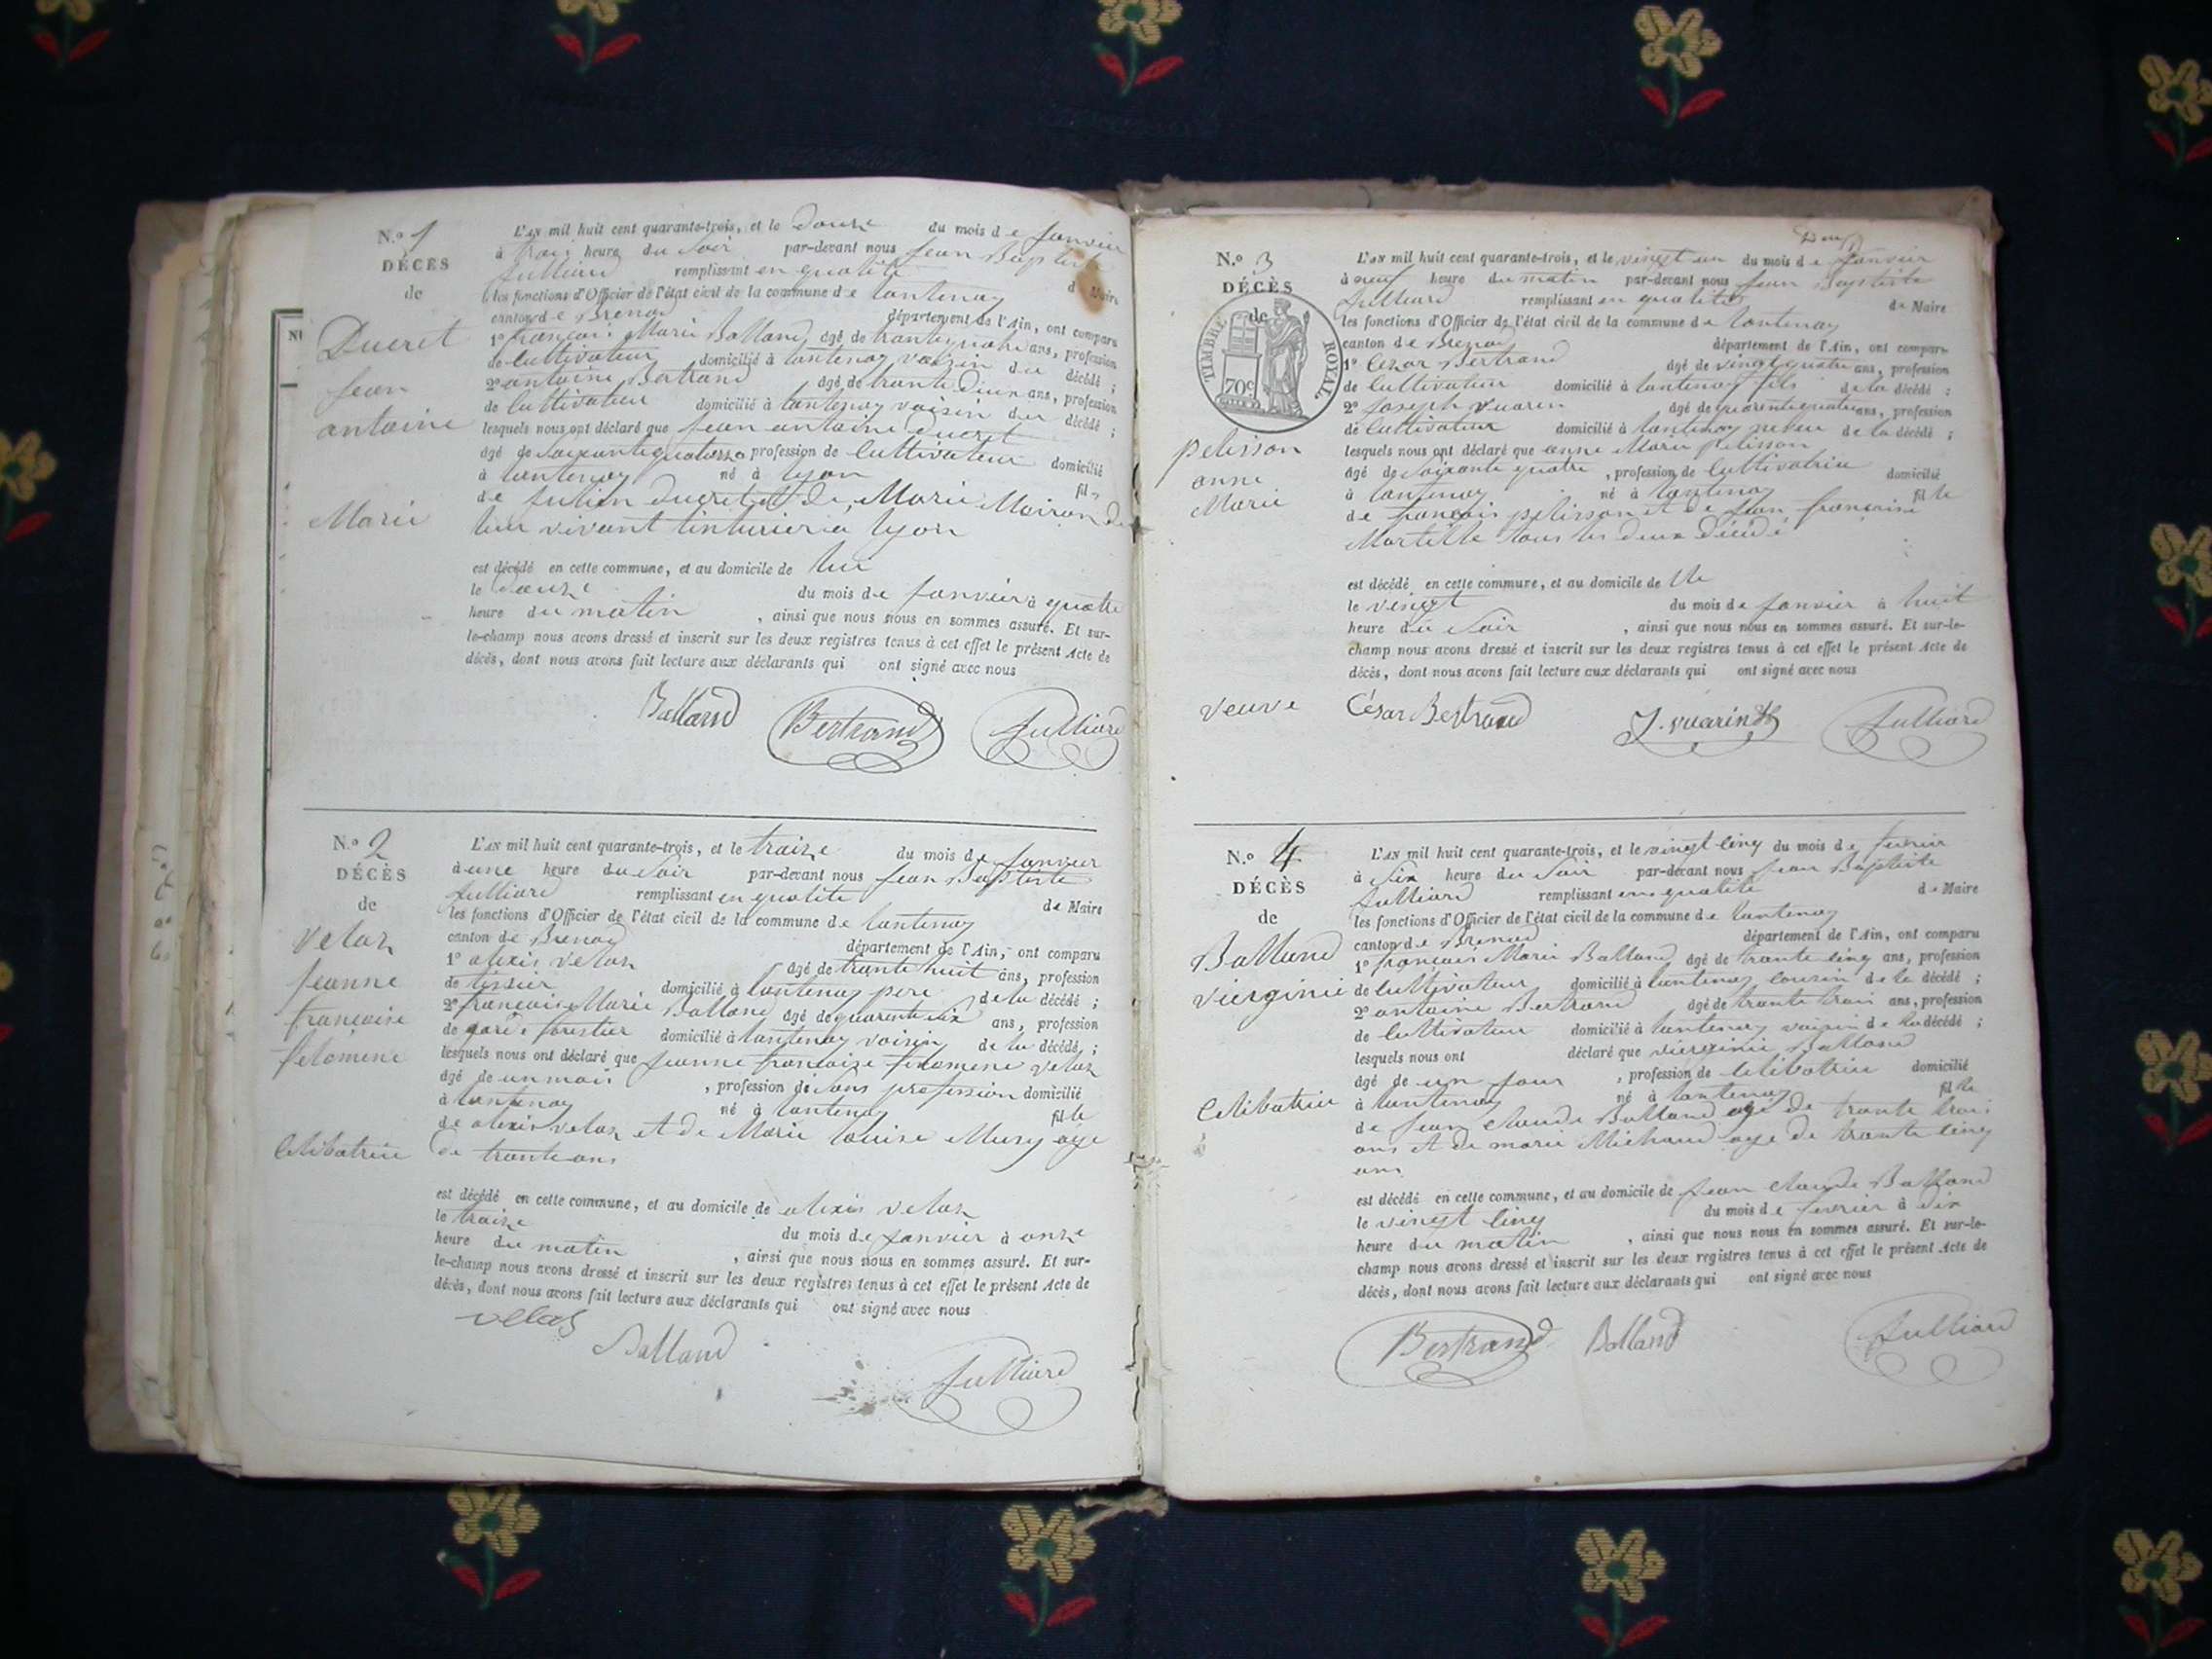 N.o 1
DÉCÈS
de
Ducret
jean
antoine
Marie
L'AN mil huit cent quarante-trois, et le douze du mois de janvier
à trois heure du soir par-devant nous jean Baptiste
julliard remplissant en qualité de Maire
les fonctions d'Officier de l'état civil de la commune de lantenay
canton de Brenod département de l'Ain, ont comparu
1o françois Marie Balland agé de trante quatre ans, profession
de cultivateur domicilié à lantenay voisin du décédé ;
2o antoine Bertrand agé de trante deux ans, profession
de cultivateur domicilié à lantenay voisin du décédé ;
lesquels nous ont déclaré que jean antoine ducret
agé de soixante quatorze profession de cultivateur domicilié
à lantenay né à lyon fils
de julien ducret et de, Marie Moiron de
leur vivant tinturier a lyon
est décédé en cette commune, et au domicile de lui
le douze du mois de janvier à quatre
heure du matin , ainsi que nous nous en sommes assuré. Et sur-
le-champ nous avons dressé et inscrit sur les deux registres tenus à cet effet le présent Acte de
décès, dont nous avons fait lecture aux déclarants qui ont signé avec nous
Balland Bertrand Julliard
N.o 2
DÉCÈS
de
velas
jeanne
françoise
felomene
celibatrice
L'AN mil huit cent quarante-trois, et le traize du mois de janvier
à une heure du soir par-devant nous jean Baptiste
julliard remplissant en qualité de Maire
les fonctions d'Officier de l'état civil de la commune de lantenay
canton de Brenod département de l'Ain, ont comparu
1o alexis velas agé de trante huit ans, profession
de tissier domicilié à lantenay pere de la décédé ;
2o françois Marie Balland agé de quarente six ans, profession
de garde forestier domicilié à lantenay voisin de la décédé ;
lesquels nous ont déclaré que jeanne françoise felomene velas
agé de un mois , profession de sans profession domicilié
à lantenay né à lantenay fille
de alexis velas et de Marie louise Mury agé
de trante ans
est décédé en cette commune, et au domicile de alexis velas
le traize du mois de janvier à onze
heure du matin , ainsi que nous nous en sommes assuré. Et sur-
le-champ nous avons dressé et inscrit sur les deux registres tenus à cet effet le présent Acte de
décès, dont nous avons fait lecture aux déclarants qui ont signé avec nous
velas
Balland
Julliard
N.o 3
DÉCÈS
de
TIMBRE ROYAL
70c
pelisson
anne
Marie
veuve
L'AN mil huit cent quarante-trois, et le vingt un du mois de janvier
à neuf heure du matin par-devant nous jean Baptiste
julliard remplissant en qualité de Maire
les fonctions d'Officier de l'état civil de la commune de lantenay
canton de Brenod département de l'Ain, ont comparu
1o Cezar Bertrand agé de vingt quatre ans, profession
de cultivateur domicilié à lantenay fils de la décédé ;
2o joseph vuarin agé de quarente quatre ans, profession
de cultivateur domicilié à lantenay neveu de la décédé ;
lesquels nous ont déclaré que anne Marie pelisson
agé de soixante quatre , profession de cultivatrice domicilié
à lantenay né à lantenay fille
de françois pelisson et de jean françoise
Martille tous les deux décédé
est décédé en cette commune, et au domicile de elle
le vingt du mois de janvier à huit
heure du soir , ainsi que nous nous en sommes assuré. Et sur-le-
champ nous avons dressé et inscrit sur les deux registres tenus à cet effet le présent Acte de
décès, dont nous avons fait lecture aux déclarants qui ont signé avec nous
César Bertrand J. vuarin Julliard
N.o 4
DÉCÈS
de
Balland
vierginie
celibatrice
L'AN mil huit cent quarante-trois, et le vingt cinq du mois de fevrier
à six heure du soir par-devant nous jean Baptiste
julliard remplissant en qualité de Maire
les fonctions d'Officier de l'état civil de la commune de lantenay
canton de Brenod département de l'Ain, ont comparu
1o françois Marie Balland agé de trante cinq ans, profession
de cultivateur domicilié à lantenay cousin de la décédé ;
2o antoine Bertrand agé de trante trois ans, profession
de cultivateur domicilié à lantenay voisin de la décédé ;
lesquels nous ont déclaré que vierginie Balland
agé de un jour , profession de celibatrice domicilié
à lantenay né à lantenay fille
de jean claude Balland agé de trante trois
ans et de marie Michaud agé de trante cinq
ans
est décédé en cette commune, et au domicile de jean claude Balland
le vingt cinq du mois de fevrier à dix
heure du matin , ainsi que nous nous en sommes assuré. Et sur-le-
champ nous avons dressé et inscrit sur les deux registres tenus à cet effet le présent Acte de
décès, dont nous avons fait lecture aux déclarants qui ont signé avec nous
Bertrand Balland Julliard